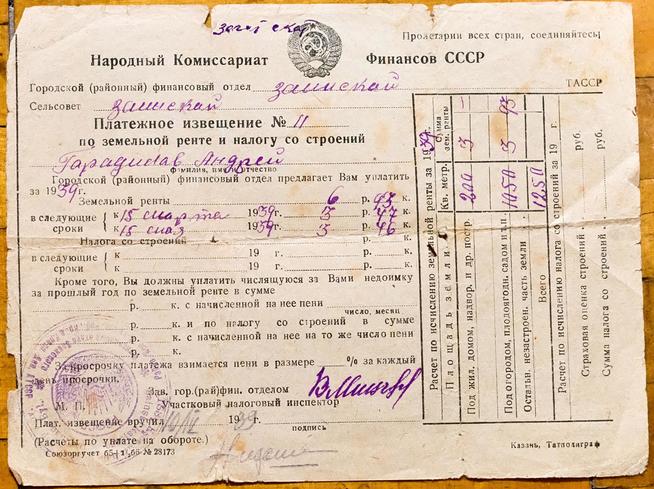 Пролетарии всех стран, соединяйтесь!
Народный Комиссариат Финансов СССР
ТАССР
Городской (районный) финансовый отдел заинской
Сельсовет заинской
Платежное извещение № 11
по земельной ренте и налогу со строений
Андрей
фамилия, имя, отчество
Городской (районный) финансовый отдел предлагает Вам уплатить
за 1939г. Земельной ренты 6 р. 93 к.
в следующие сроки к 15 марта 1939г. 3 р. 47 к.
к 15 мая 1939г. 3 р. 46 к.
Налога со строений р. к.
в следующие сроки к 19 г. р. к.
к 19 г. р. к.
Кроме того, Вы должны уплатить числящуюся за Вами недоимку
за прошлый год по земельной ренте в сумме
р. к. с начисленной на нее пени
число, месяц
р. к. и по налогу со строений в сумме
р. к. с начисленной на нее на то же число пени
р. к.
За просрочку платежа взимается пени в размере % за каждый
день просрочки.
Зав. гор.(рай)фин. отделом
М. П. Участковый налоговый инспектор
Плат. извещение вручил 1939
подпись
(Расчеты по уплате на обороте.)
Союзоргучет 65—1, 66 № 28173
Казань, Татполиграф
Расчет по исчислению земельной ренты за 1939г.
Площадь земли Кв. метр. Сумма зем. ренты
Под жил. домом, надвор. и др. постр. 200 3 —
Под огородом, плодоягодн. садом и т.п. 1050 3 93
Остальн. незастроен. часть земли
Всего 1250
Расчет по исчислению налога со строений за 19 г.
Страховая оценка строений руб.
Сумма налога со строений руб.